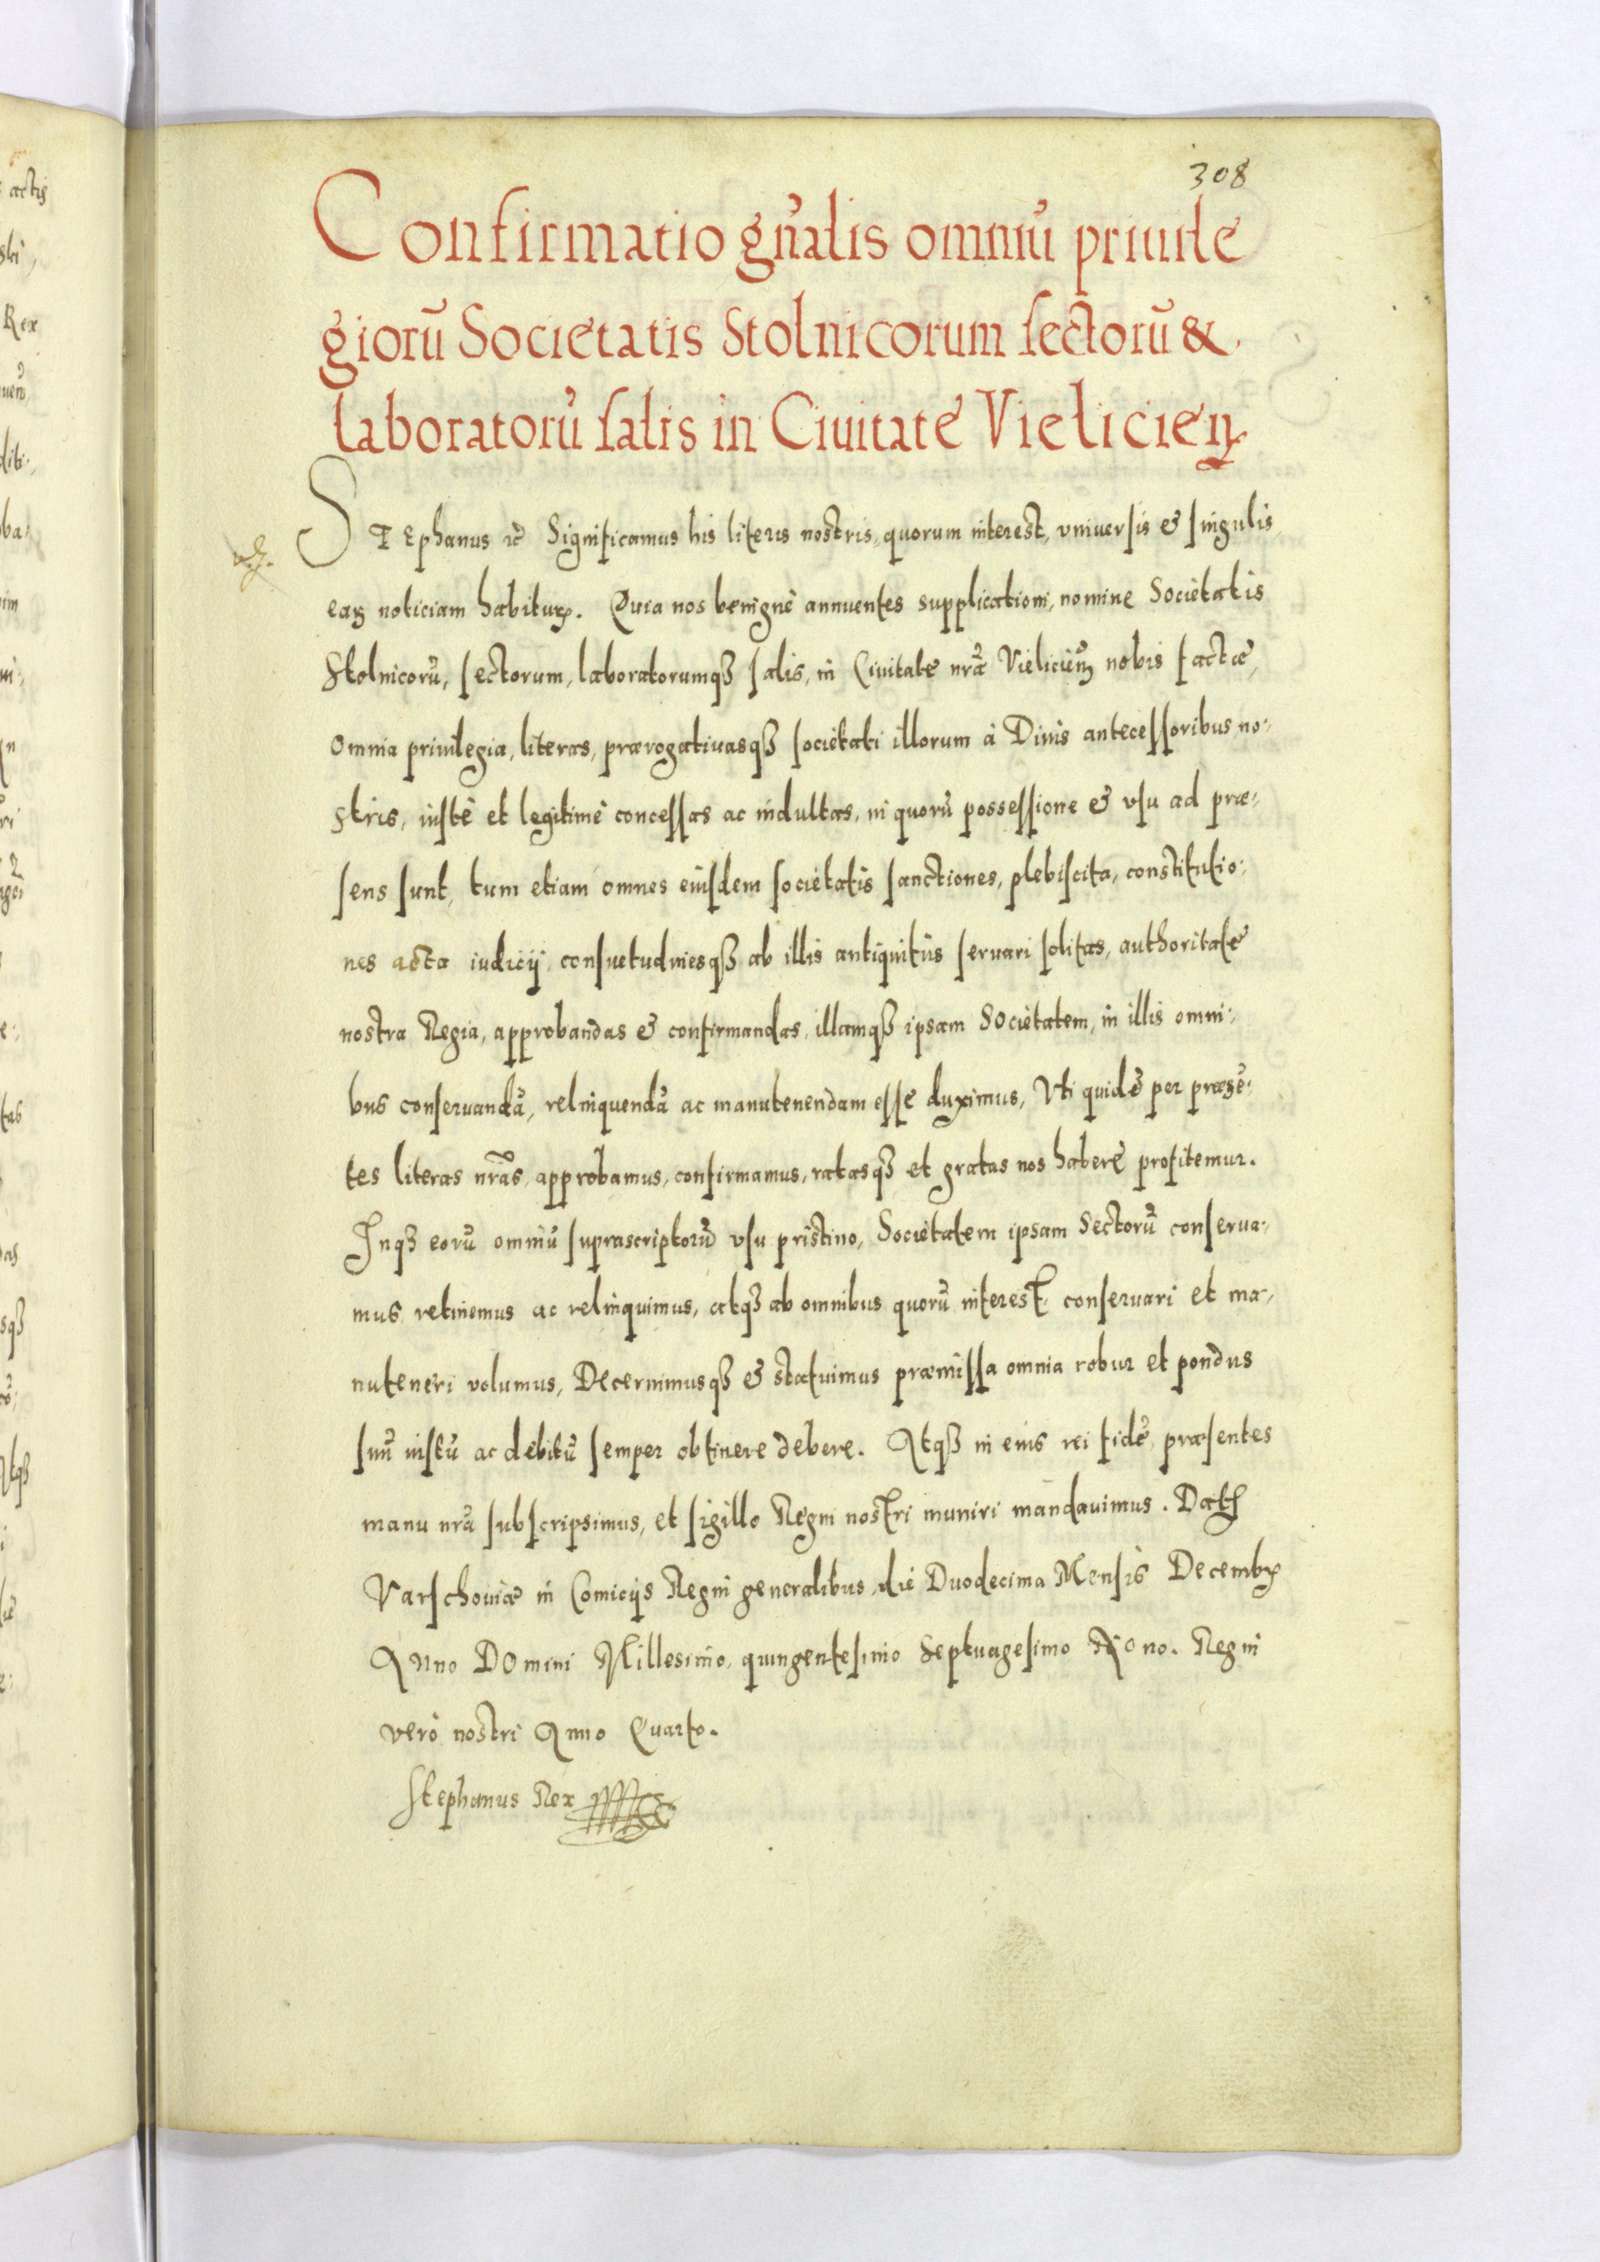 308
Confirmatio gñalis omniũ priuile
giorũ Societatis Stolnicorum sectorũ &
laboratorũ salis in Ciuitate Vielicień
STEphanus etc Significamus his literis nostris, quorum interest, vniuersis & singulis,
earum noticiam habituris. Quia nos benignè annuentes supplicationi, nomine Societatis
Stolnicorũ, sectorum, laboratorumqȝ salis, in Ciuitate nr̃a Vielicień nobis factæ,
omnia priuilegia, literas, prærogatiuasqȝ societati illorum à Diuis antecessoribus no-
stris, iustè et legitimè concessas ac indultas, in quorũ possessione & vsu ad præ-
sens sunt, tum etiam omnes eiusdem societatis sanctiones, plebiscita, constitutio-
nes acta iudicij, consuetudinesqȝ ab illis antiquitùs seruari solitas, authoritate
nostra Regia, approbandas & confirmandas, illamqȝ ipsam Societatem, in illis omni-
bus conseruandã, relinquendã ac manutenendam esse duximus, Vti quidẽ per præsẽ-
tes literas nr̃as, approbamus, confirmamus, ratasqȝ et gratas nos habere profitemur.
Inqȝ eorũ omniũ suprascriptorũ vsu pristino, Societatem ipsam Sectorũ conserua-
mus retinemus ac relinquimus, atqȝ ab omnibus quorũ interest, conseruari et ma-
nuteneri volumus, Decernimusqȝ & statuimus præmissa omnia robur et pondus
suũ iustũ ac debitũ semper obtinere debere. Atqȝ in eius rei fidẽ præsentes
manu nr̃a subscripsimus, et sigillo Regni nostri muniri mandauimus. Dat
Varschouiæ in Comicijs Regni generalibus, die Duodecima Mensis Decembr
Anno Domini Millesimo, quingentesimo septuagesimo Nono. Regni
verò nostri Anno Quarto.
Stephanus Rex